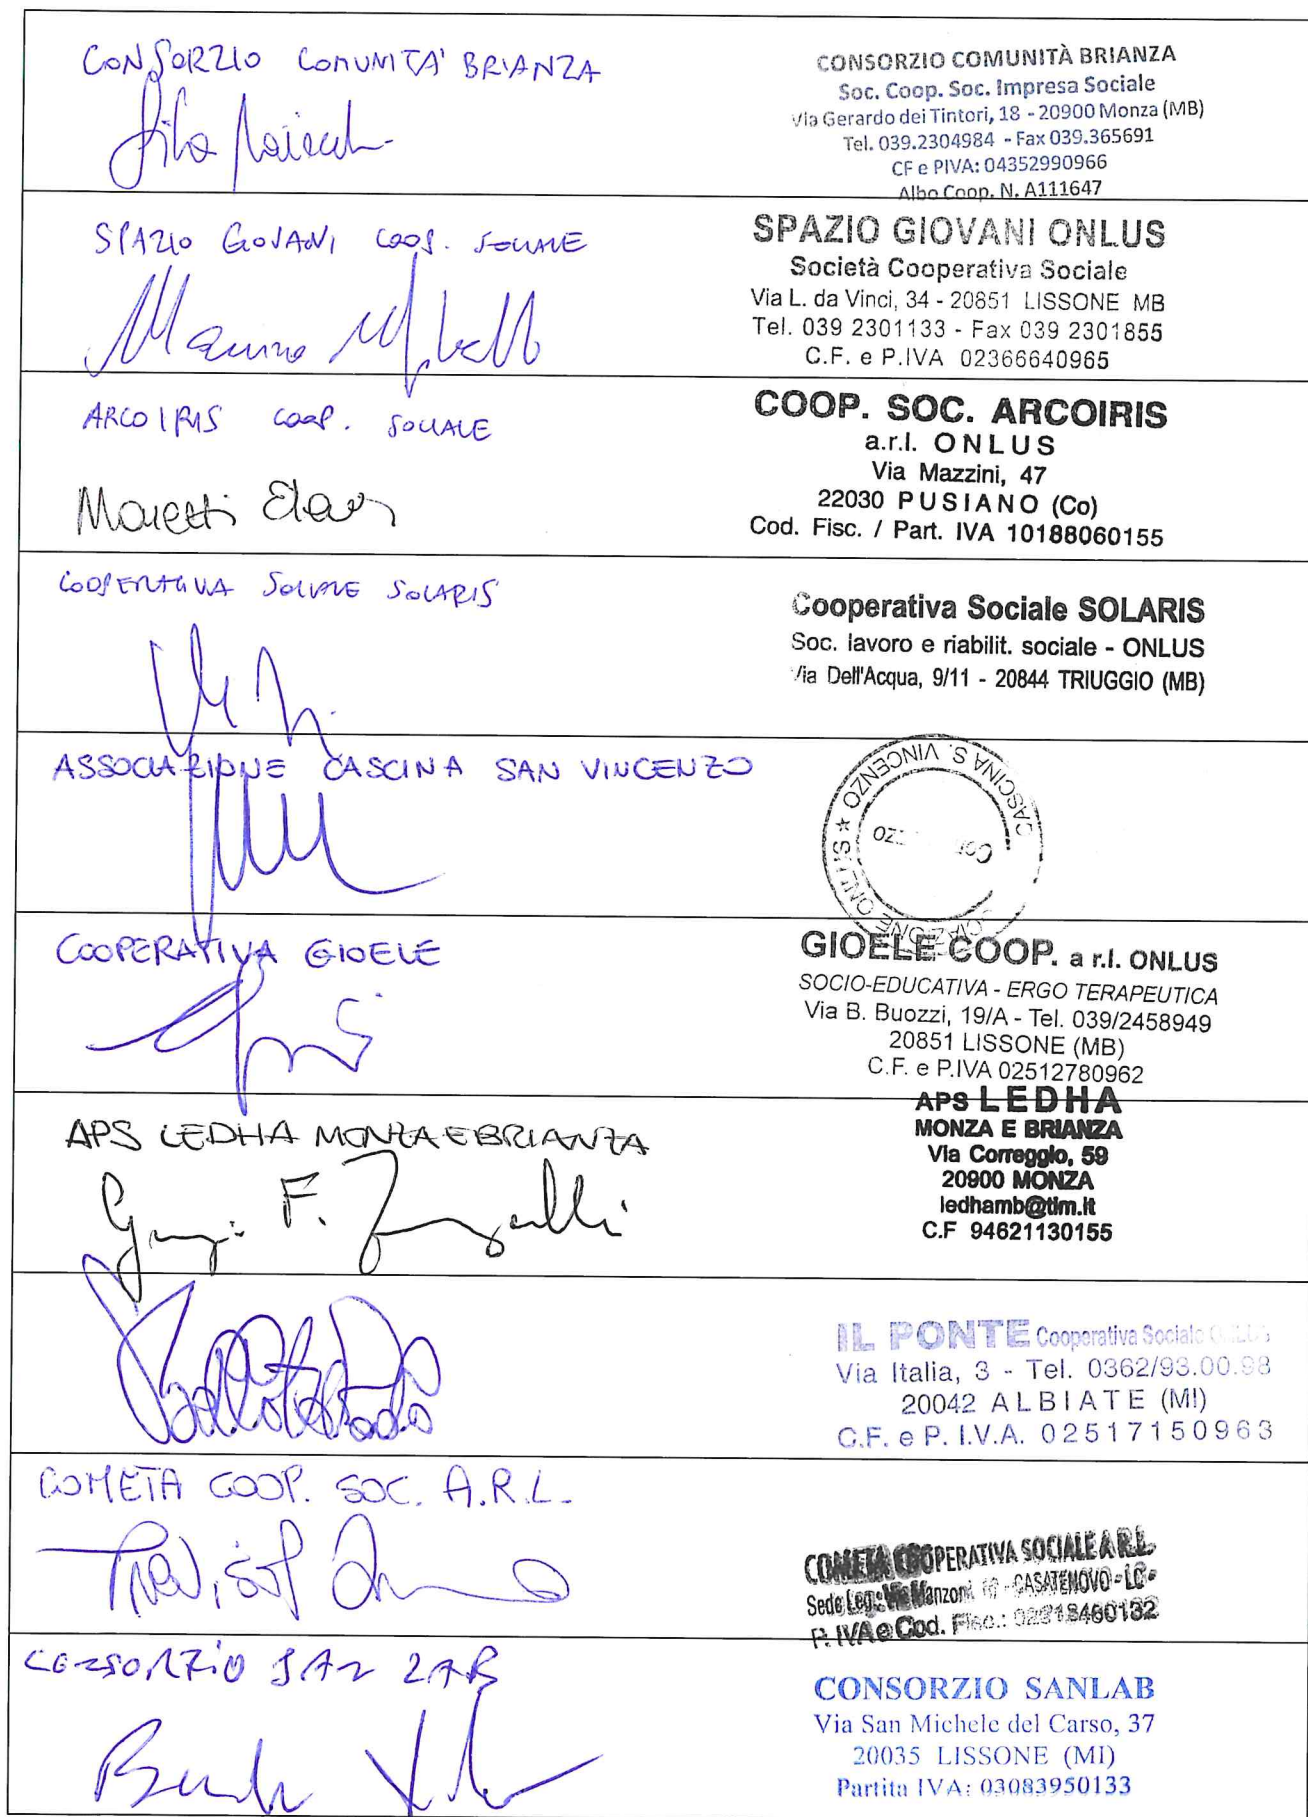 CONSORZIO COMUNITA' BRIANZA
CONSORZIO COMUNITÀ BRIANZA
Soc. Coop. Soc. Impresa Sociale
Via Gerardo dei Tintori, 18 - 20900 Monza (MB)
Tel. 039.2304984 - Fax 039.365691
CF e PIVA: 04352990966
Albo Coop. N. A111647
SPAZIO GIOVANI COOP. SOCIALE
SPAZIO GIOVANI ONLUS
Società Cooperativa Sociale
Via L. da Vinci, 34 - 20851 LISSONE MB
Tel. 039 2301133 - Fax 039 2301855
C.F. e P.IVA 02366640965
ARCOIRIS COOP. SOCIALE
Moretti
COOP. SOC. ARCOIRIS
a.r.l. ONLUS
Via Mazzini, 47
22030 PUSIANO (Co)
Cod. Fisc. / Part. IVA 10188060155
COOPERATIVA SOCIALE SOLARIS
Cooperativa Sociale SOLARIS
Soc. lavoro e riabilit. sociale - ONLUS
Via Dell'Acqua, 9/11 - 20844 TRIUGGIO (MB)
ASSOCIAZIONE CASCINA SAN VINCENZO
CASCINA S. VINCENZO ★
COOPERATIVA GIOELE
GIOELE COOP. a r.l. ONLUS
SOCIO-EDUCATIVA - ERGO TERAPEUTICA
Via B. Buozzi, 19/A - Tel. 039/2458949
20851 LISSONE (MB)
C.F. e P.IVA 02512780962
APS LEDHA MONZA E BRIANZA
F.
APS LEDHA
MONZA E BRIANZA
Via Correggio, 59
20900 MONZA
ledhamb@tim.it
C.F 94621130155
IL PONTE Cooperativa Sociale
Via Italia, 3 - Tel. 0362/93.00.98
20042 ALBIATE (MI)
C.F. e P. I.V.A. 02517150963
COMETA COOP. SOC. A.R.L.
COMETA COOPERATIVA SOCIALE A R.L.
Sede Leg.: Via Manzoni - CASATENOVO - LC -
P. IVA e Cod. Fisc.:
CONSORZIO SAN LAB
CONSORZIO SANLAB
Via San Michele del Carso, 37
20035 LISSONE (MI)
Partita IVA: 03083950133